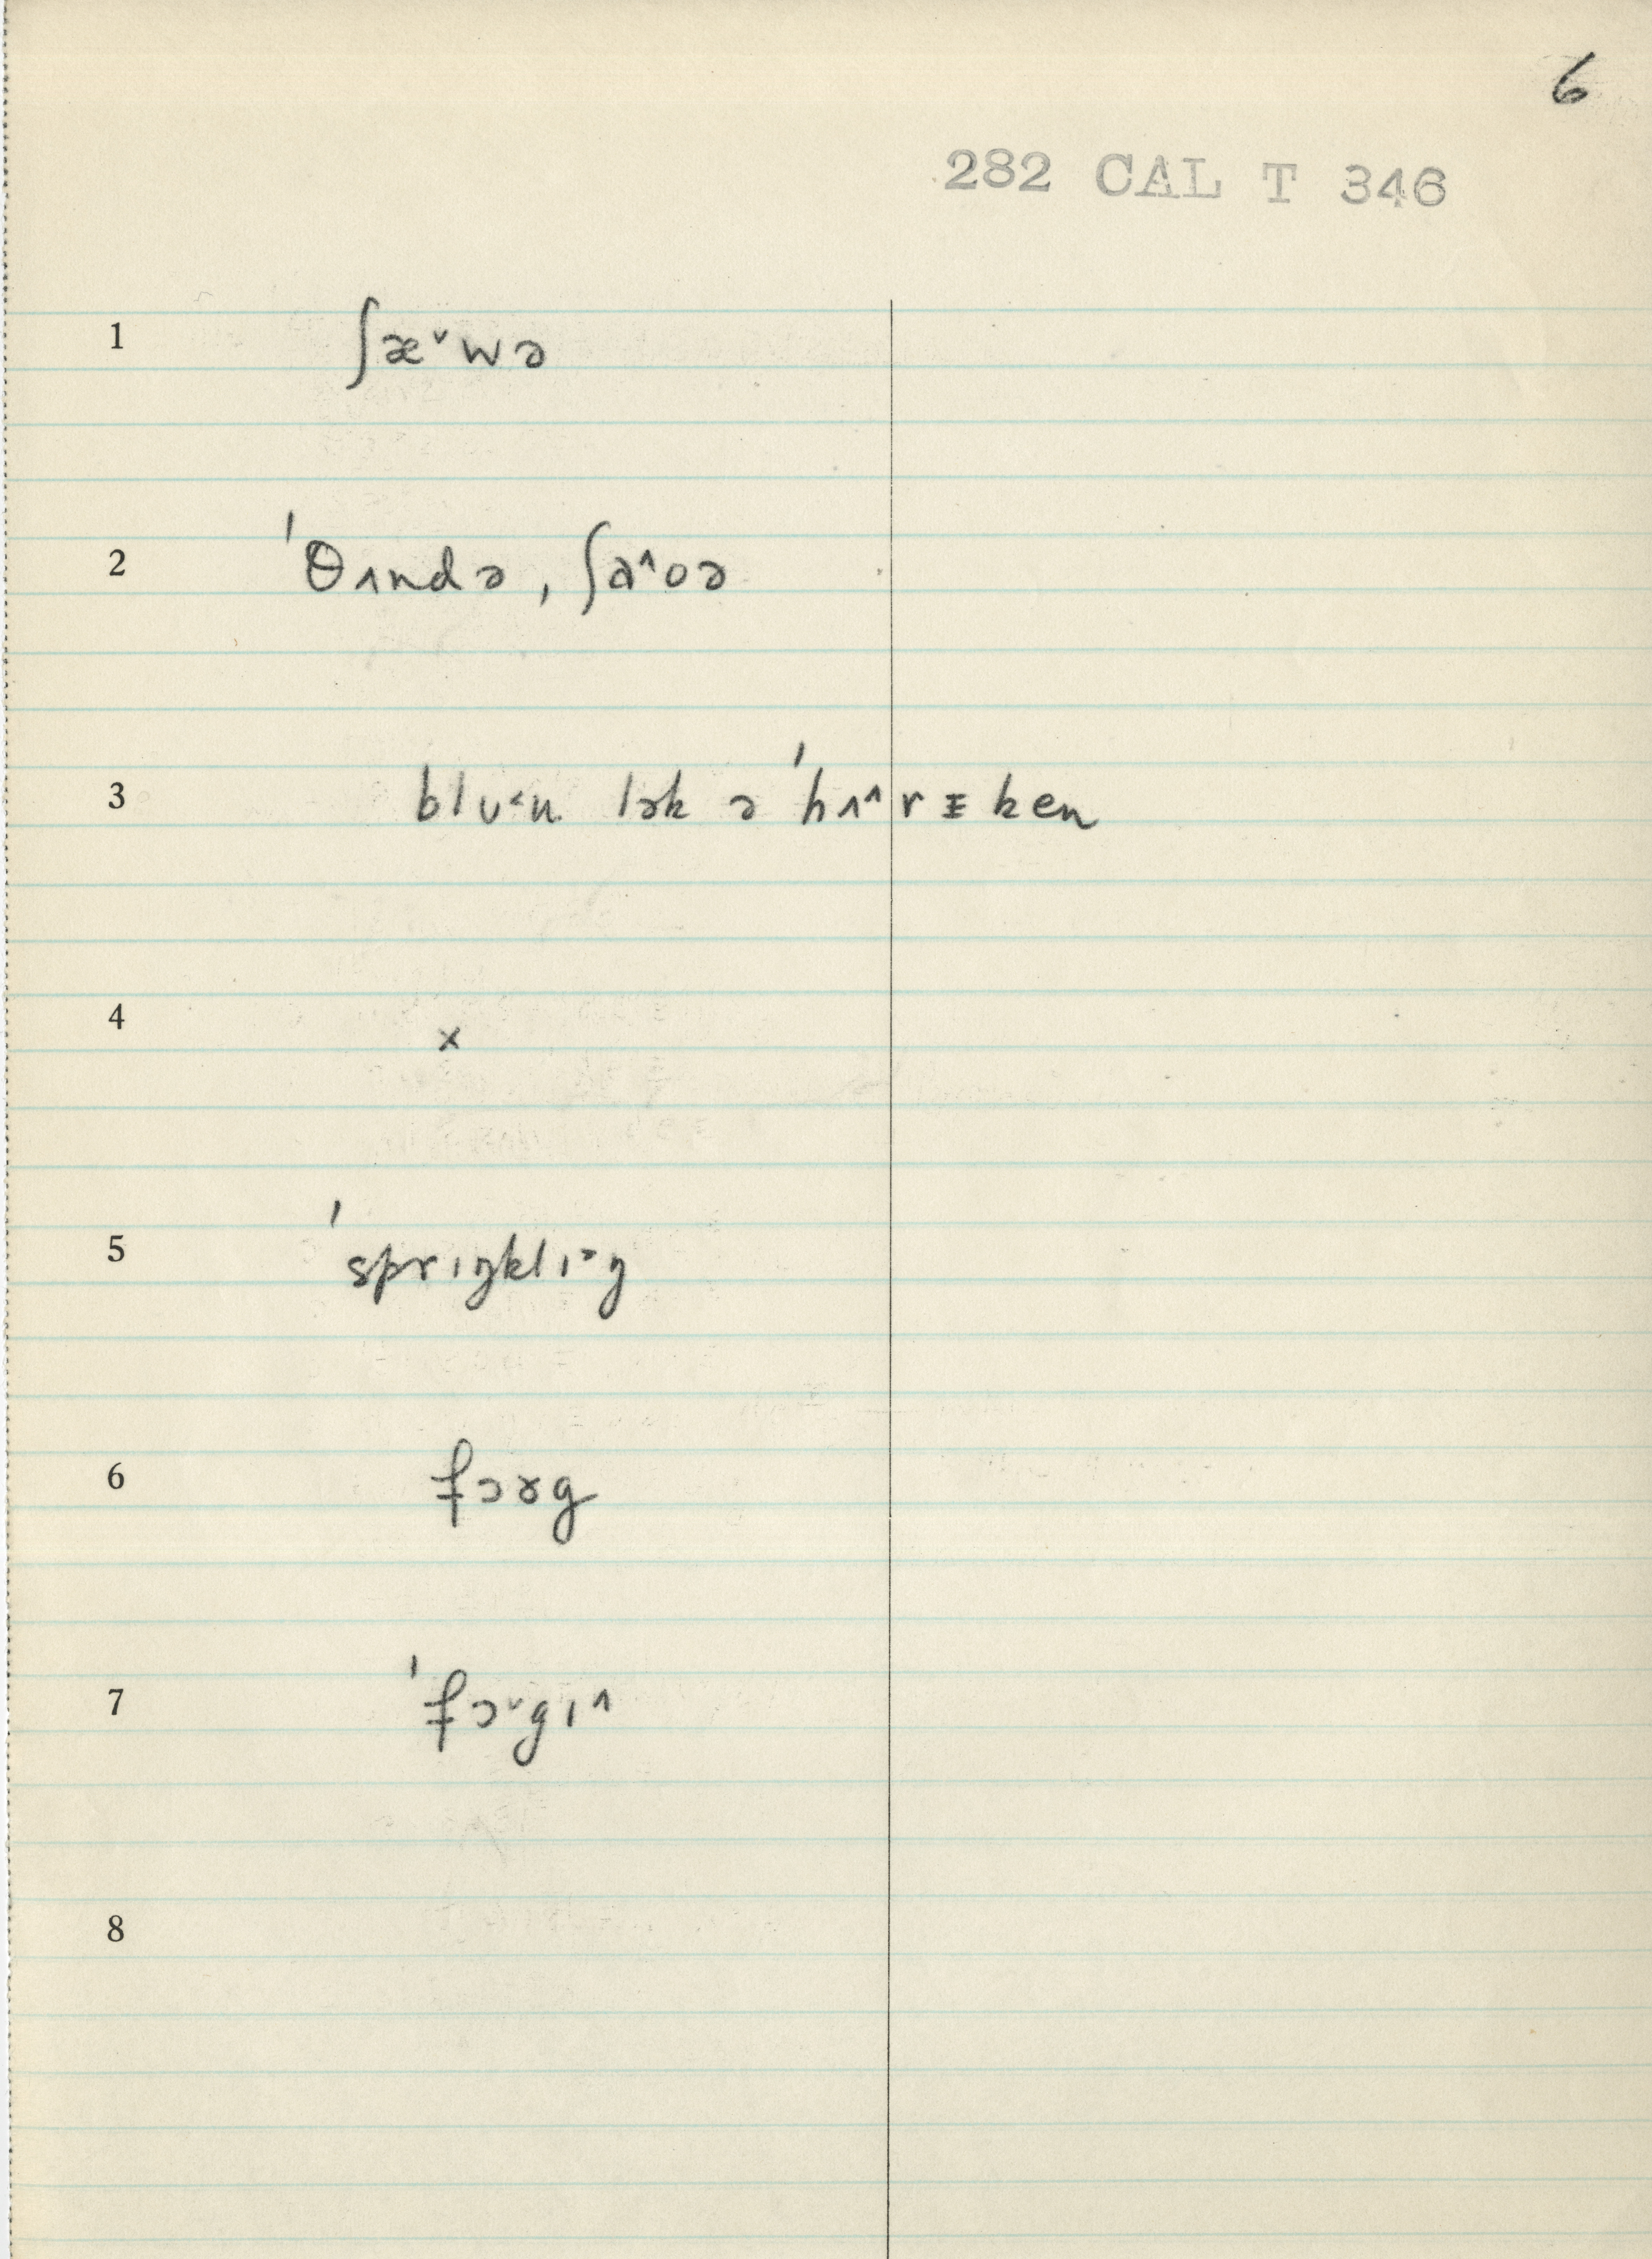 6
282 CAL T 346
1 ʃæ˅wə
2 ˈθʌndə, ʃa^oə
3 blu˂n lək ə ˈhʌ^rɪken
4 x
5 ˈsprɪŋklɪ˃ŋ
6 fɔɤg
7 ˈfɔ˅gɪ^
8